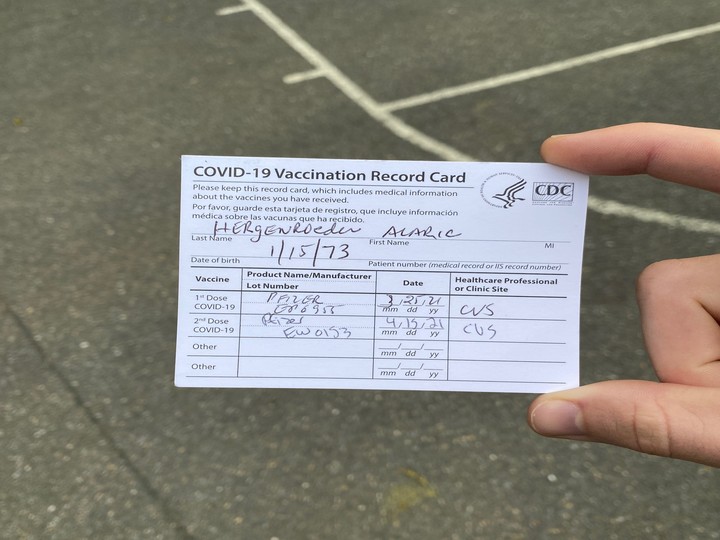 COVID-19 Vaccination Record Card
CDC
Please keep this record card, which includes medical information
about the vaccines you have received.
Por favor, guarde esta tarjeta de registro, que incluye información
médica sobre las vacunas que ha recibido.
HERgenRoeder ALARIC
Last Name First Name MI
1/15/73
Date of birth Patient number (medical record or IIS record number)
Vaccine Product Name/Manufacturer Date Healthcare Professional
Lot Number or Clinic Site
1st Dose PFIZER 25, 21 CVS
COVID-19 mm dd yy
2nd Dose Pfizer 4, 15, 21 CVS
COVID-19 EW0153 mm dd yy
Other / /
mm dd yy
Other / /
mm dd yy